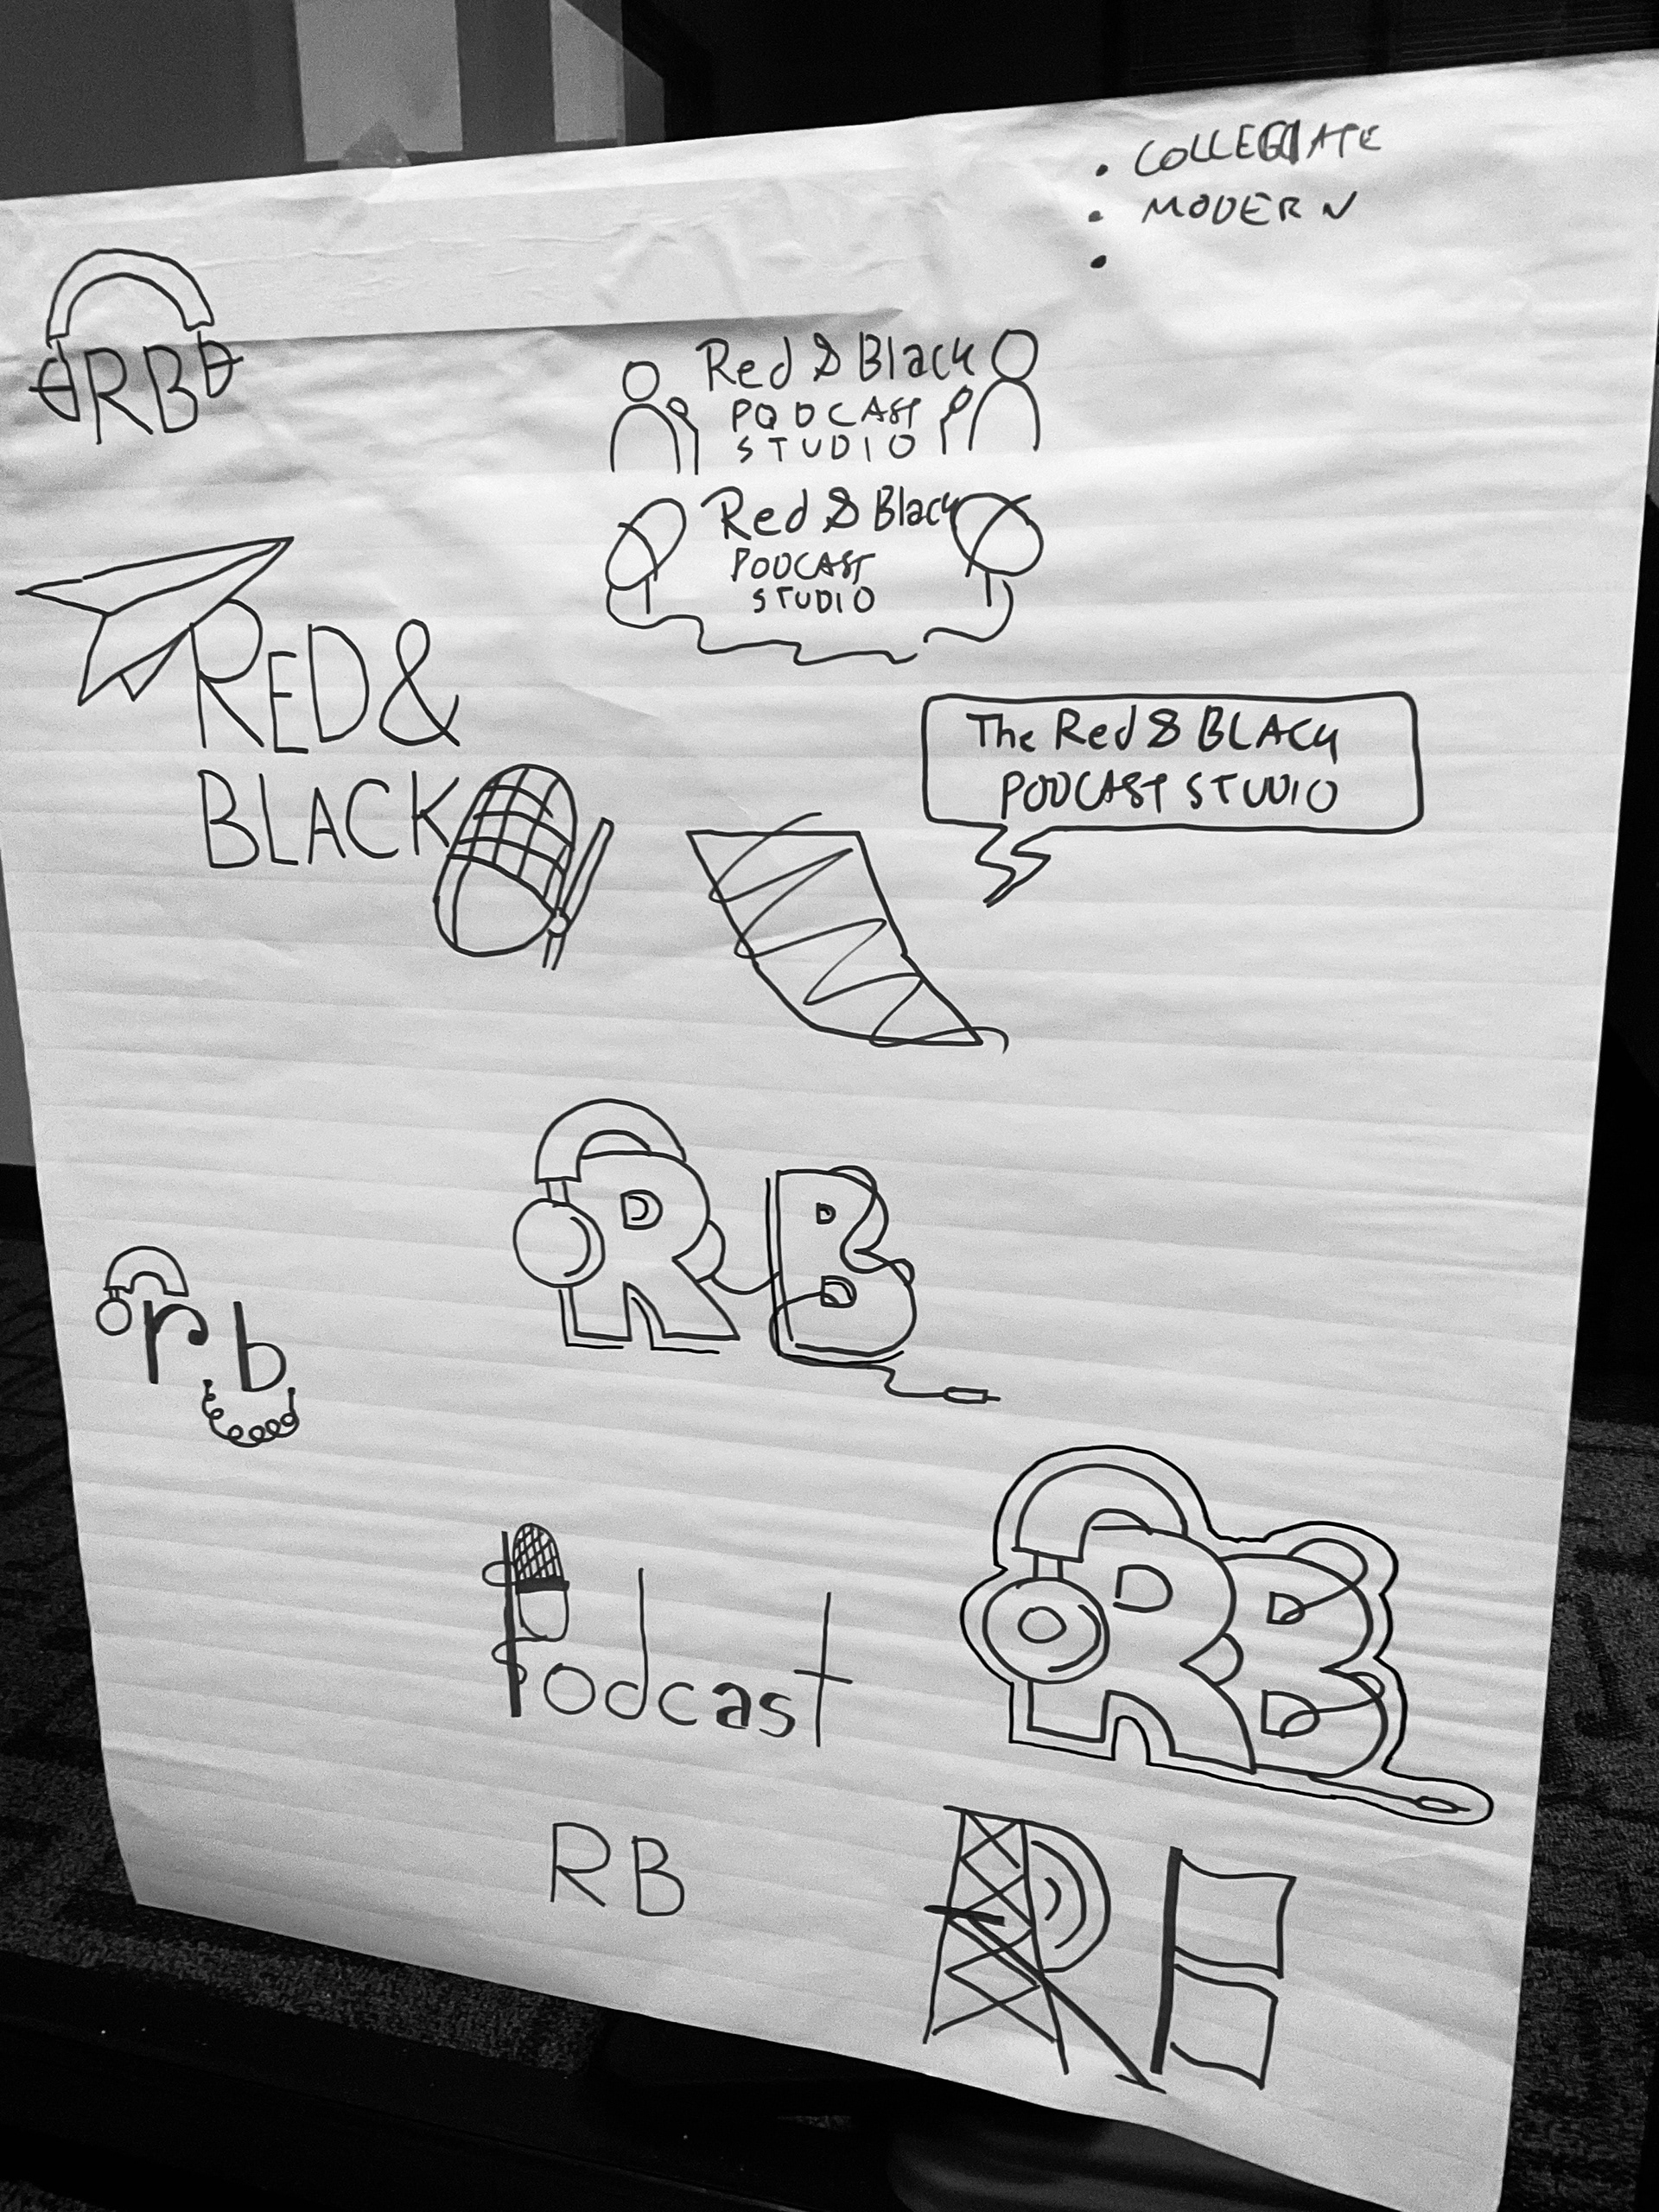 • COLLEGIATE
• MODERN
•
RB
Red & Black
PODCAST
STUDIO
Red & Black
PODCAST
STUDIO
RED &
BLACK
The Red & BLACK
PODCAST STUDIO
RB
rb
Podcast
RB
RB
RB